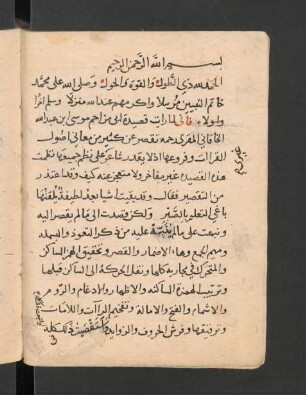 بسم الله الرحمن الرحيم
الحمد لله ذي الطول والقوة والحول وصلى الله على محمد
خاتم النبيين مرسلا واكرمهم عند الله منزلا وسلم
فاني لما رايت قصيدة ابي مزاحم موسى بن عبيد الله
الخاقاني المقري رحمه تقصر عن كثير من معاني اصول
القراات وفروعها اذ لا يقدر شاعر على نظم جميعها نظمت
هذه القصيدة غير مفاخر ولا متعجز عنه كيف وقد اعتذر
من التقصير فقال وقد بقيت اشيا بعد لطيفة يلقنها
باغي التعلم بالصبر ولكن قصدت الى ما لم يقصد اليه
ونبهت على ما لم ينبه عليه من ذكر التعوذ والبسملة
وميم الجمع وهاء الاضمار والقصر وتحقيق الهمز الساكن
والمتحرك في مجاريه كلها ونقل الحركة الى الساكن قبلها
وترتيب الهمزة الساكنة والاظهار والادغام والروم
والاشمام والفتح والامالة وتفخيم الراآت واللامات
وترقيقها وفرش الحروف والزوايد ذلك كله